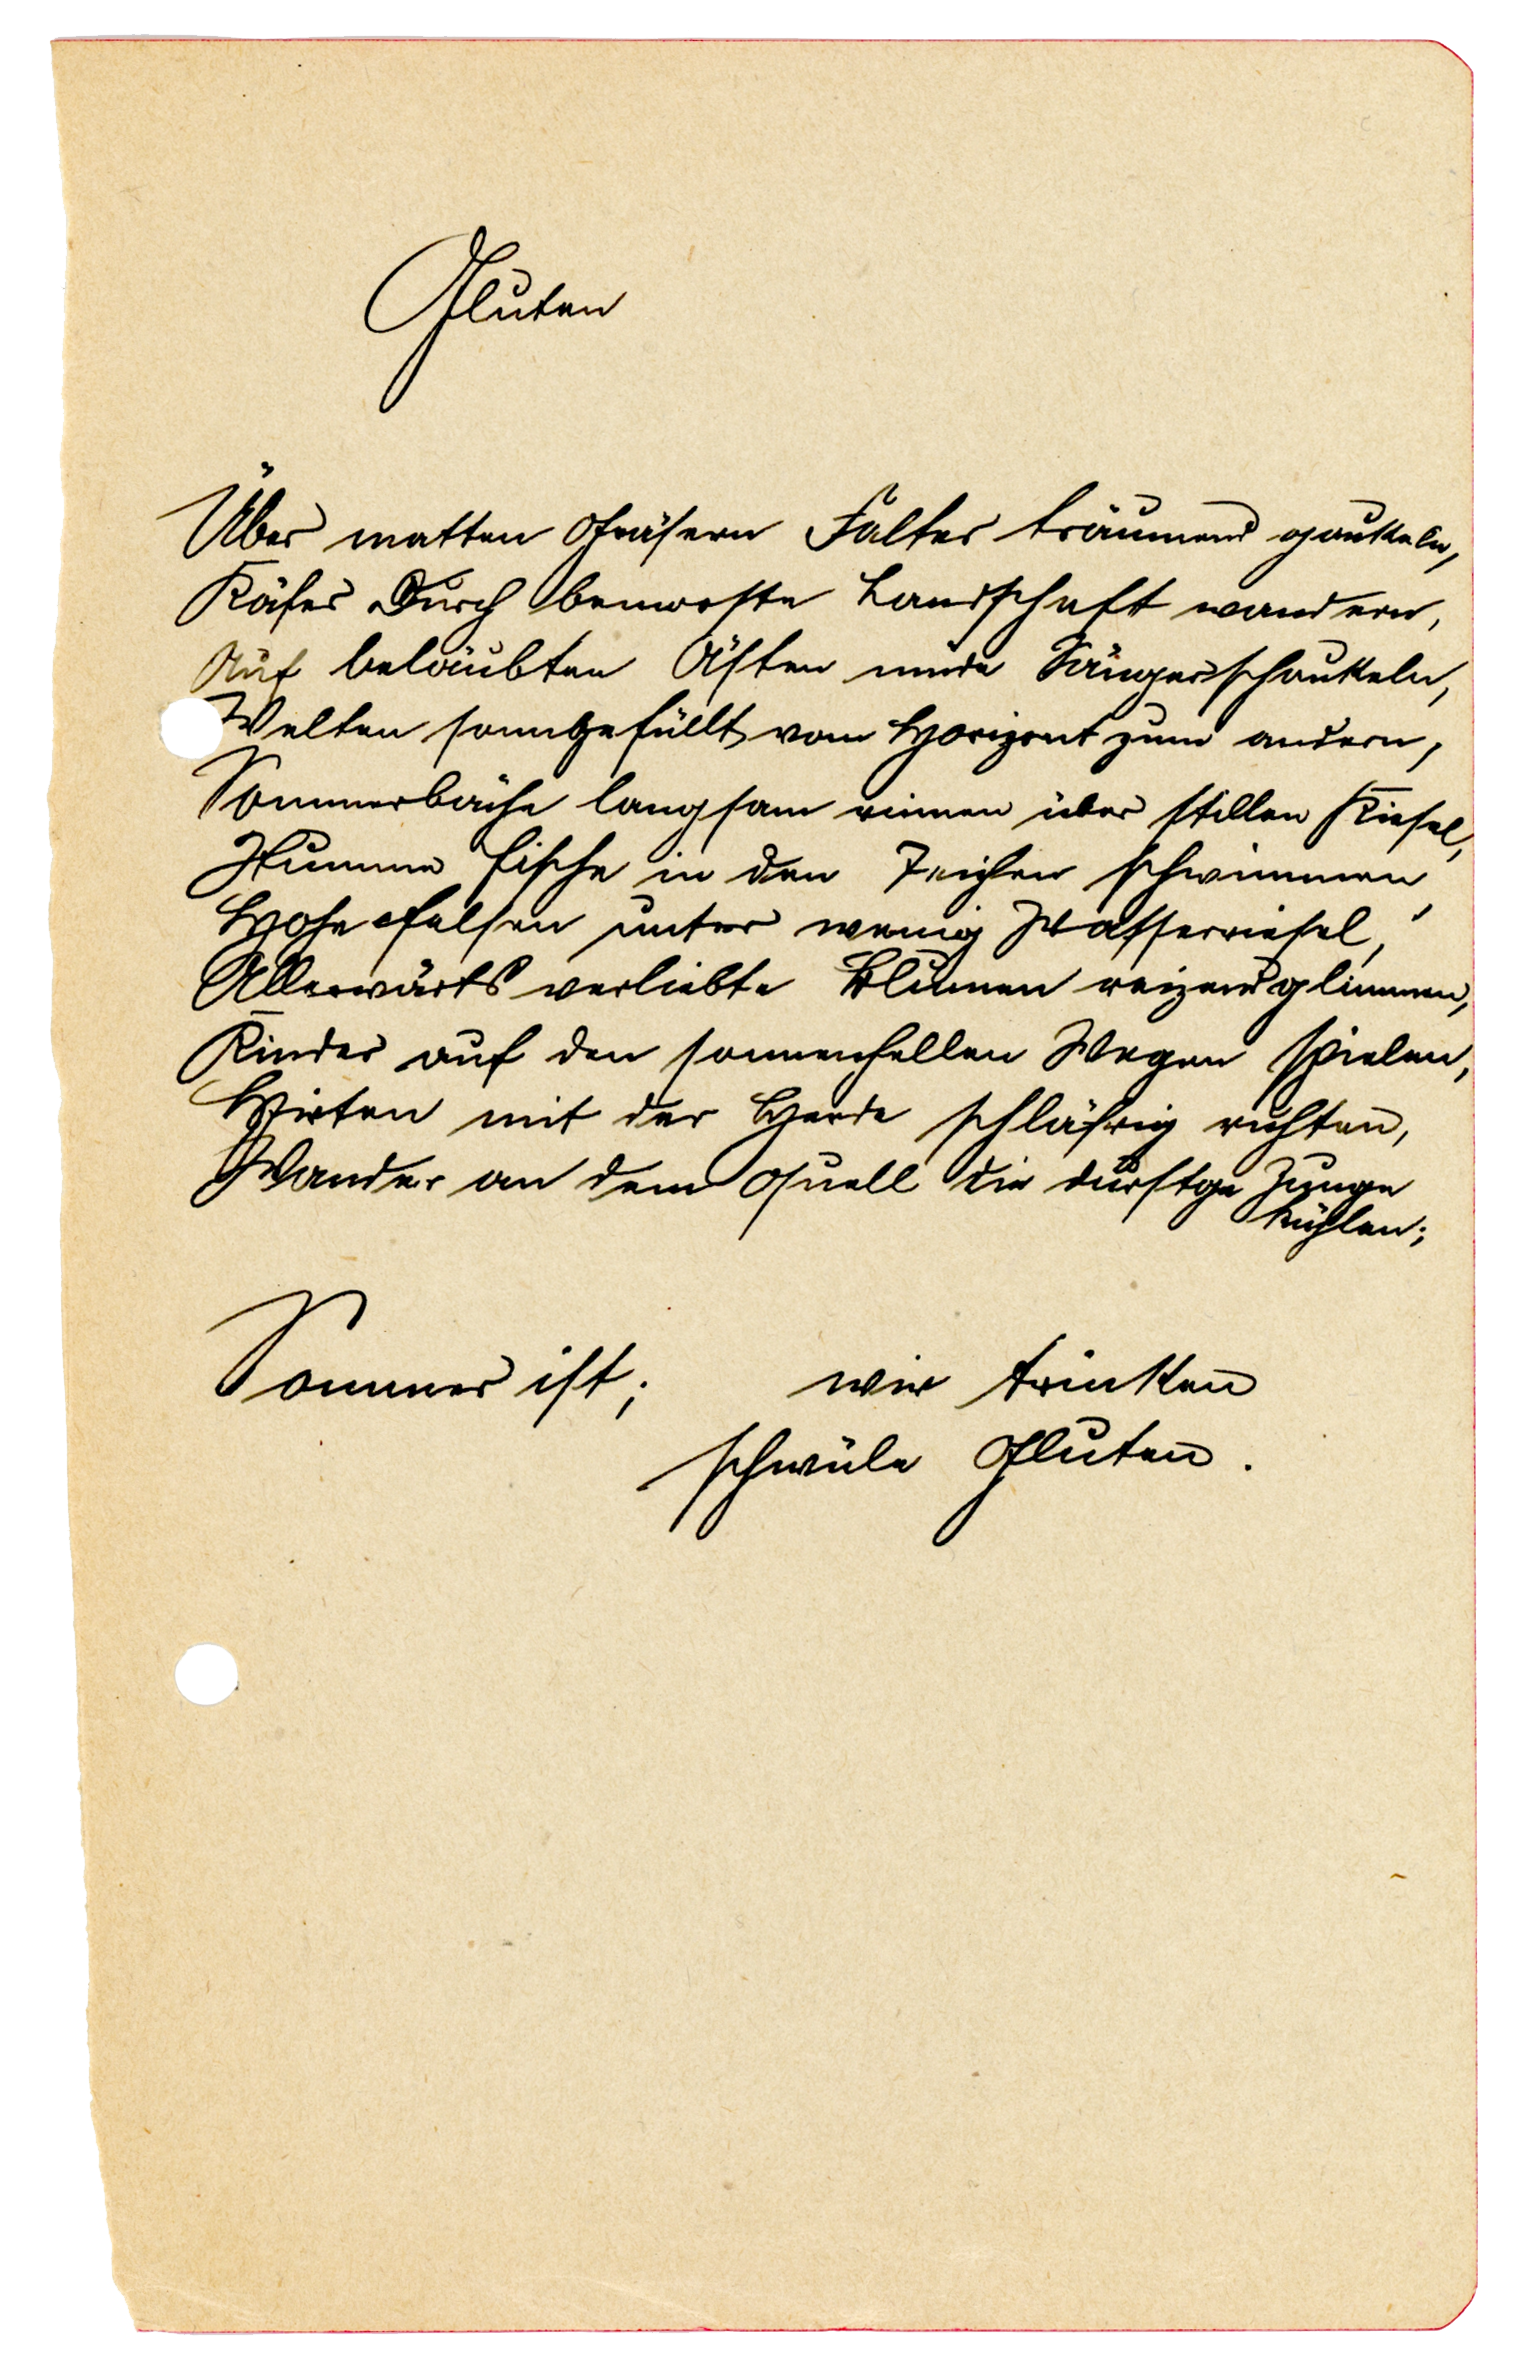 Gluten
Über matten Gräsern Falter träumend gaukeln,
Käfer durch bemooste Landschaft wandern,
Auf belaubten Ästen müde Sänger schaukeln,
Welten sonngefüllt vom Horizont zum andern,
Sommerbäche langsam rinnen über stillen Kiesel,
Stumme Fische in den Teichen schwimmen,
Hohe Felsen unter wenig Wasserriesel,
Allerwärts verliebte Blumen reizend glimmen,
Kinder auf den sonnenhellen Wegen spielen,
Hirten mit der Herde schläfrig ruhten,
Wandrer an dem Quell die durstge Zunge
kühlen;
Sommer ist; wir trinken
schwüle Gluten.